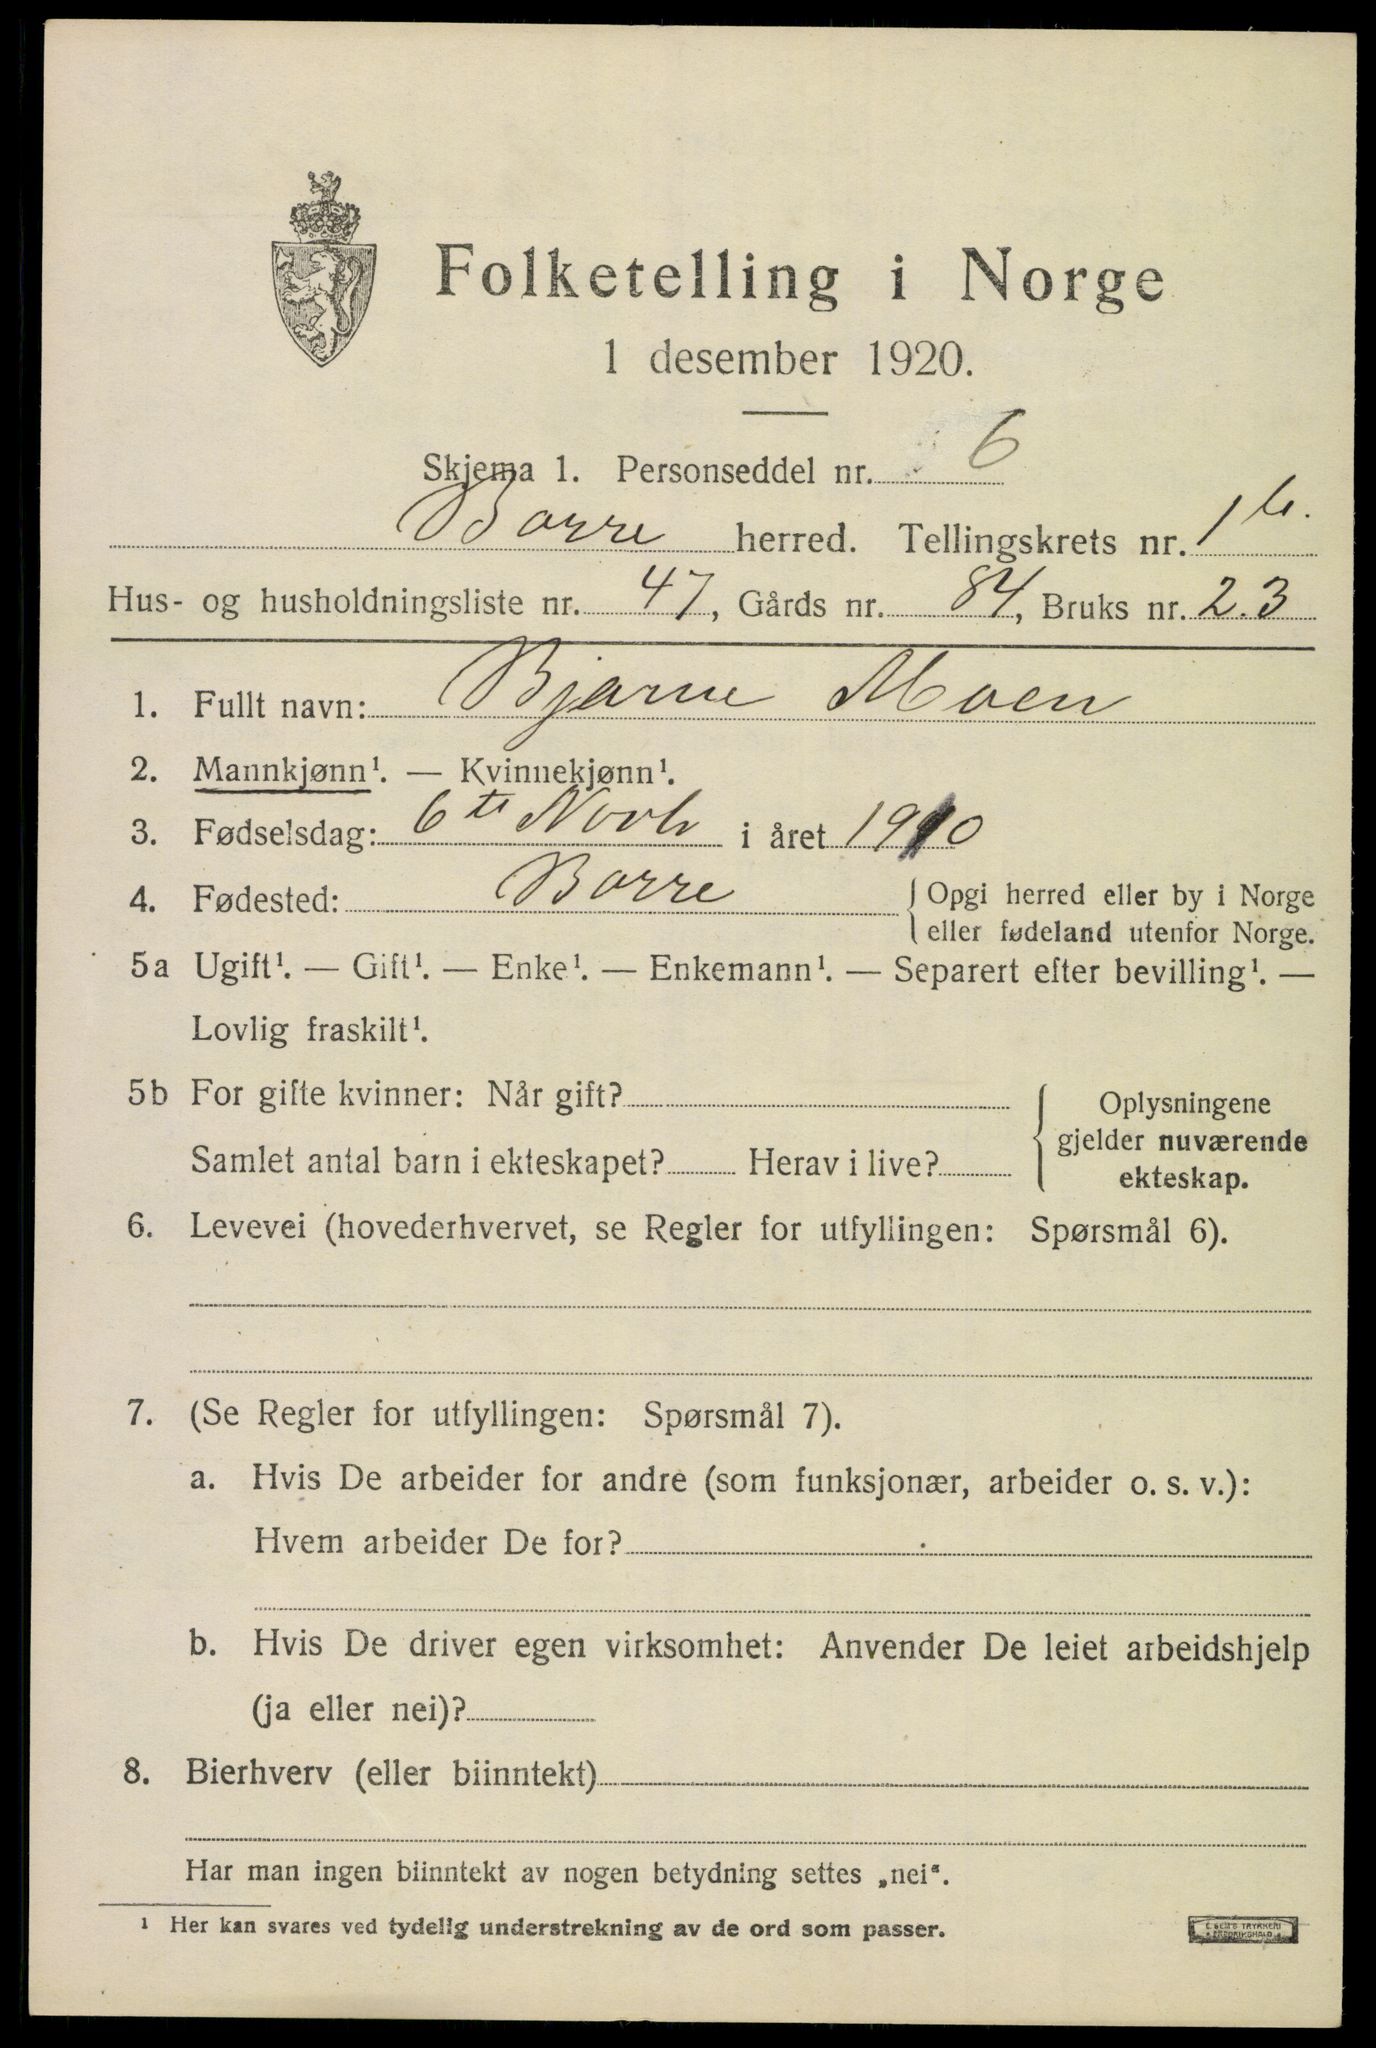 Folketelling i Norge
1 desember 1920.
Skjema 1. Personseddel nr. 6
Borre herred. Tellingskrets nr. 1 b.
Hus- og husholdningsliste nr. 47, Gårds nr. 84, Bruks nr. 23
1. Fullt navn: Bjarne Moen
2. Mannkjønn¹. — Kvinnekjønn¹.
3. Fødselsdag: 6te Novb i året 1910
4. Fødested: Borre { Opgi herred eller by i Norge
eller fødeland utenfor Norge.
5a Ugift¹. — Gift¹. — Enke¹. — Enkemann¹. — Separert efter bevilling¹. —
Lovlig fraskilt¹.
5b For gifte kvinner: Når gift?
Samlet antal barn i ekteskapet? Herav i live?
{ Oplysningene
gjelder nuværende
ekteskap.
6. Levevei (hovederhvervet, se Regler for utfyllingen: Spørsmål 6).
7. (Se Regler for utfyllingen: Spørsmål 7).
a. Hvis De arbeider for andre (som funksjonær, arbeider o. s. v.):
Hvem arbeider De for?
b. Hvis De driver egen virksomhet: Anvender De leiet arbeidshjelp
(ja eller nei)?
8. Bierhverv (eller biinntekt)
Har man ingen biinntekt av nogen betydning settes „nei“.
¹ Her kan svares ved tydelig understrekning av de ord som passer.
E. SEM'S TRYKKERI
FREDRIKSHALD